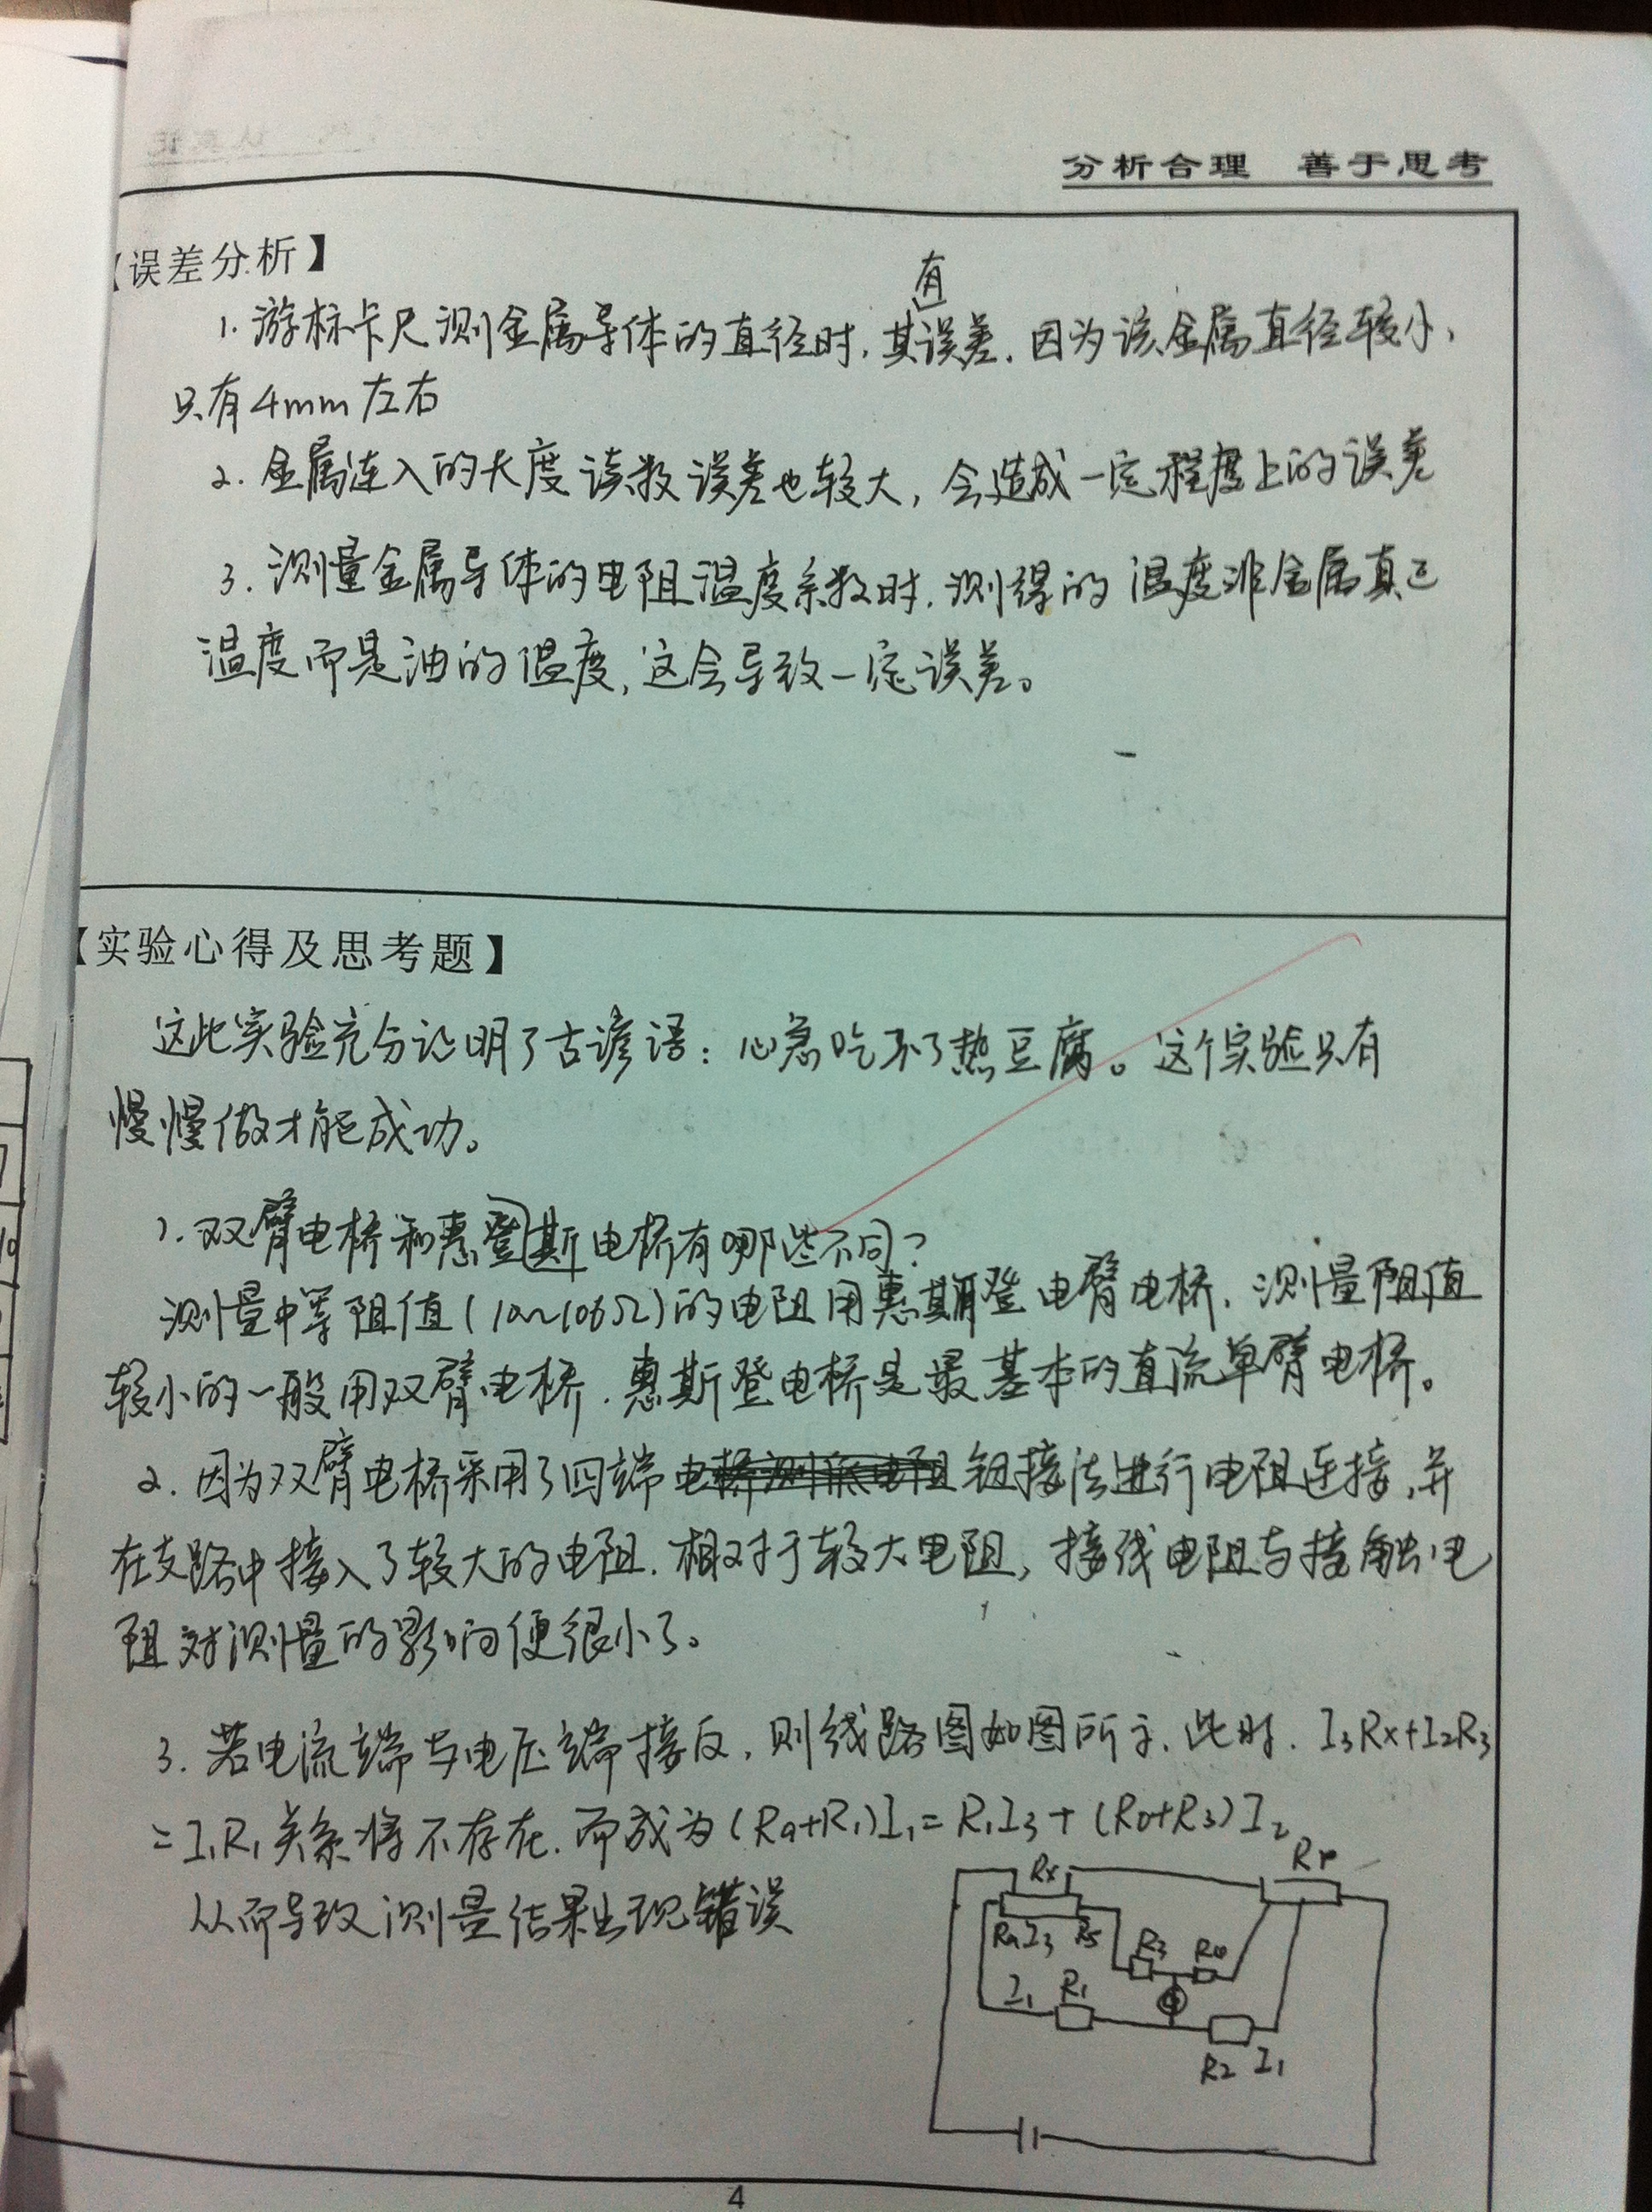 分析合理 善于思考
【误差分析】
有
1. 游标卡尺测金属导体的直径时,其误差.因为该金属直径较小,
只有4mm左右
2. 金属连入的长度读数误差也较大,会造成一定程度上的误差
3. 测量金属导体的电阻温度系数时.测得的温度非金属真正
温度而是油的温度,这会导致一定误差。
【实验心得及思考题】
这此实验充分说明了古谚语:心急吃不了热豆腐。这个实验只有
慢慢做才能成功。
1. 双臂电桥和惠登斯电桥有哪些不同?
测量中等阻值(10~106Ω)的电阻用惠斯登电臂电桥.测量阻值
较小的一般用双臂电桥.惠斯登电桥是最基本的直流单臂电桥。
2. 因为双臂电桥采用了四端钮接法进行电阻连接,并
在支路中接入了较大的电阻.相对于较大电阻,接线电阻与接触电
阻对测量的影响便很小了。
3. 若电流端与电压端接反,则线路图如图所示.此时.I3Rx+I2R3
=I1R1关系将不存在.而成为(Ra+R1)I1=R1I3+(R0+R3)I2
从而导致测量结果出现错误
Rx Rr
Ra I3 R5 R3 R4
I1 R1 G
R2 I1
4